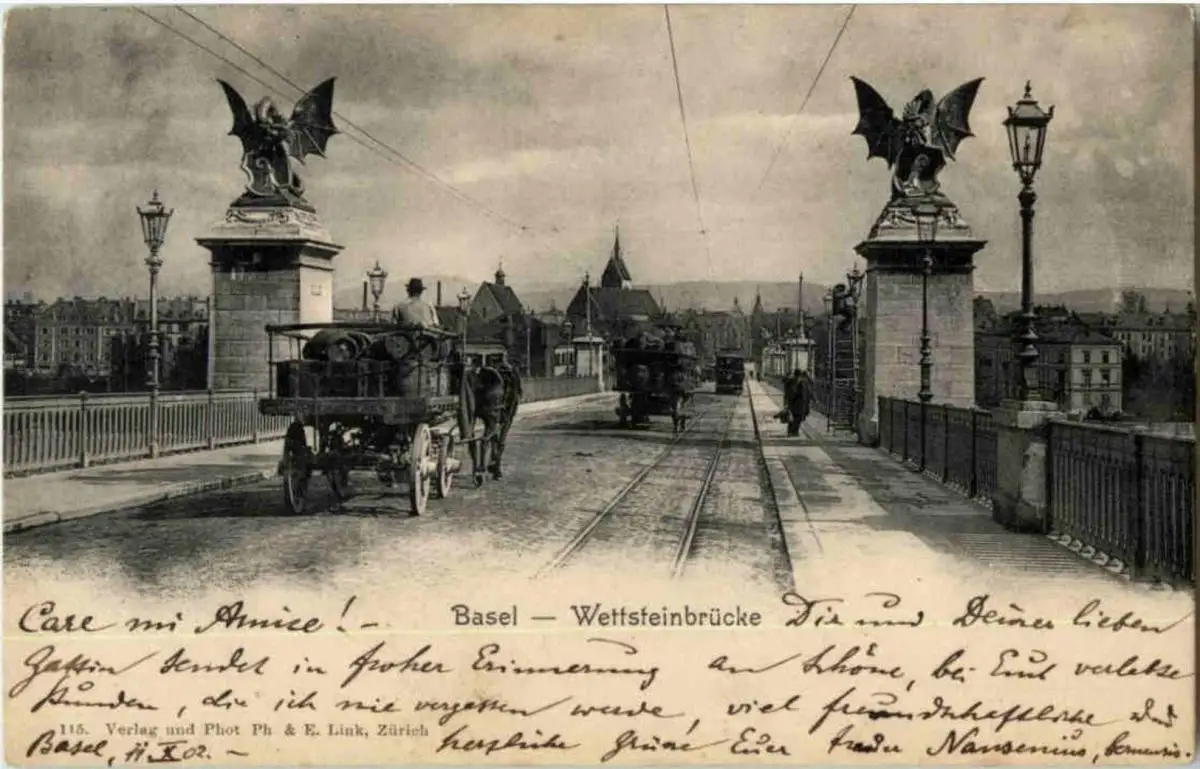 Basel — Wettsteinbrücke
Care mi Amice! - Dir und Deiner lieben
Gattin sendet in froher Erinnerung an schöne, bei Euch verlebte
Stunden, die ich nie vergessen werde, viel freundschaftliche und
115. Verlag und Phot Ph & E. Link, Zürich
Basel, 11.X.02. - herzliche Grüsse Euer